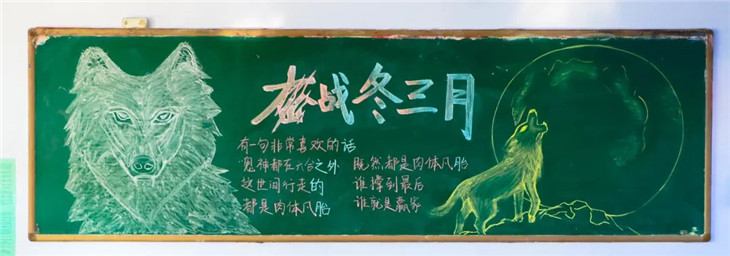 奋战冬三月
有一句非常喜欢的话
鬼神都在六合之外
这世间行走的
都是肉体凡胎
既然都是肉体凡胎
谁撑到最后
谁就是赢家